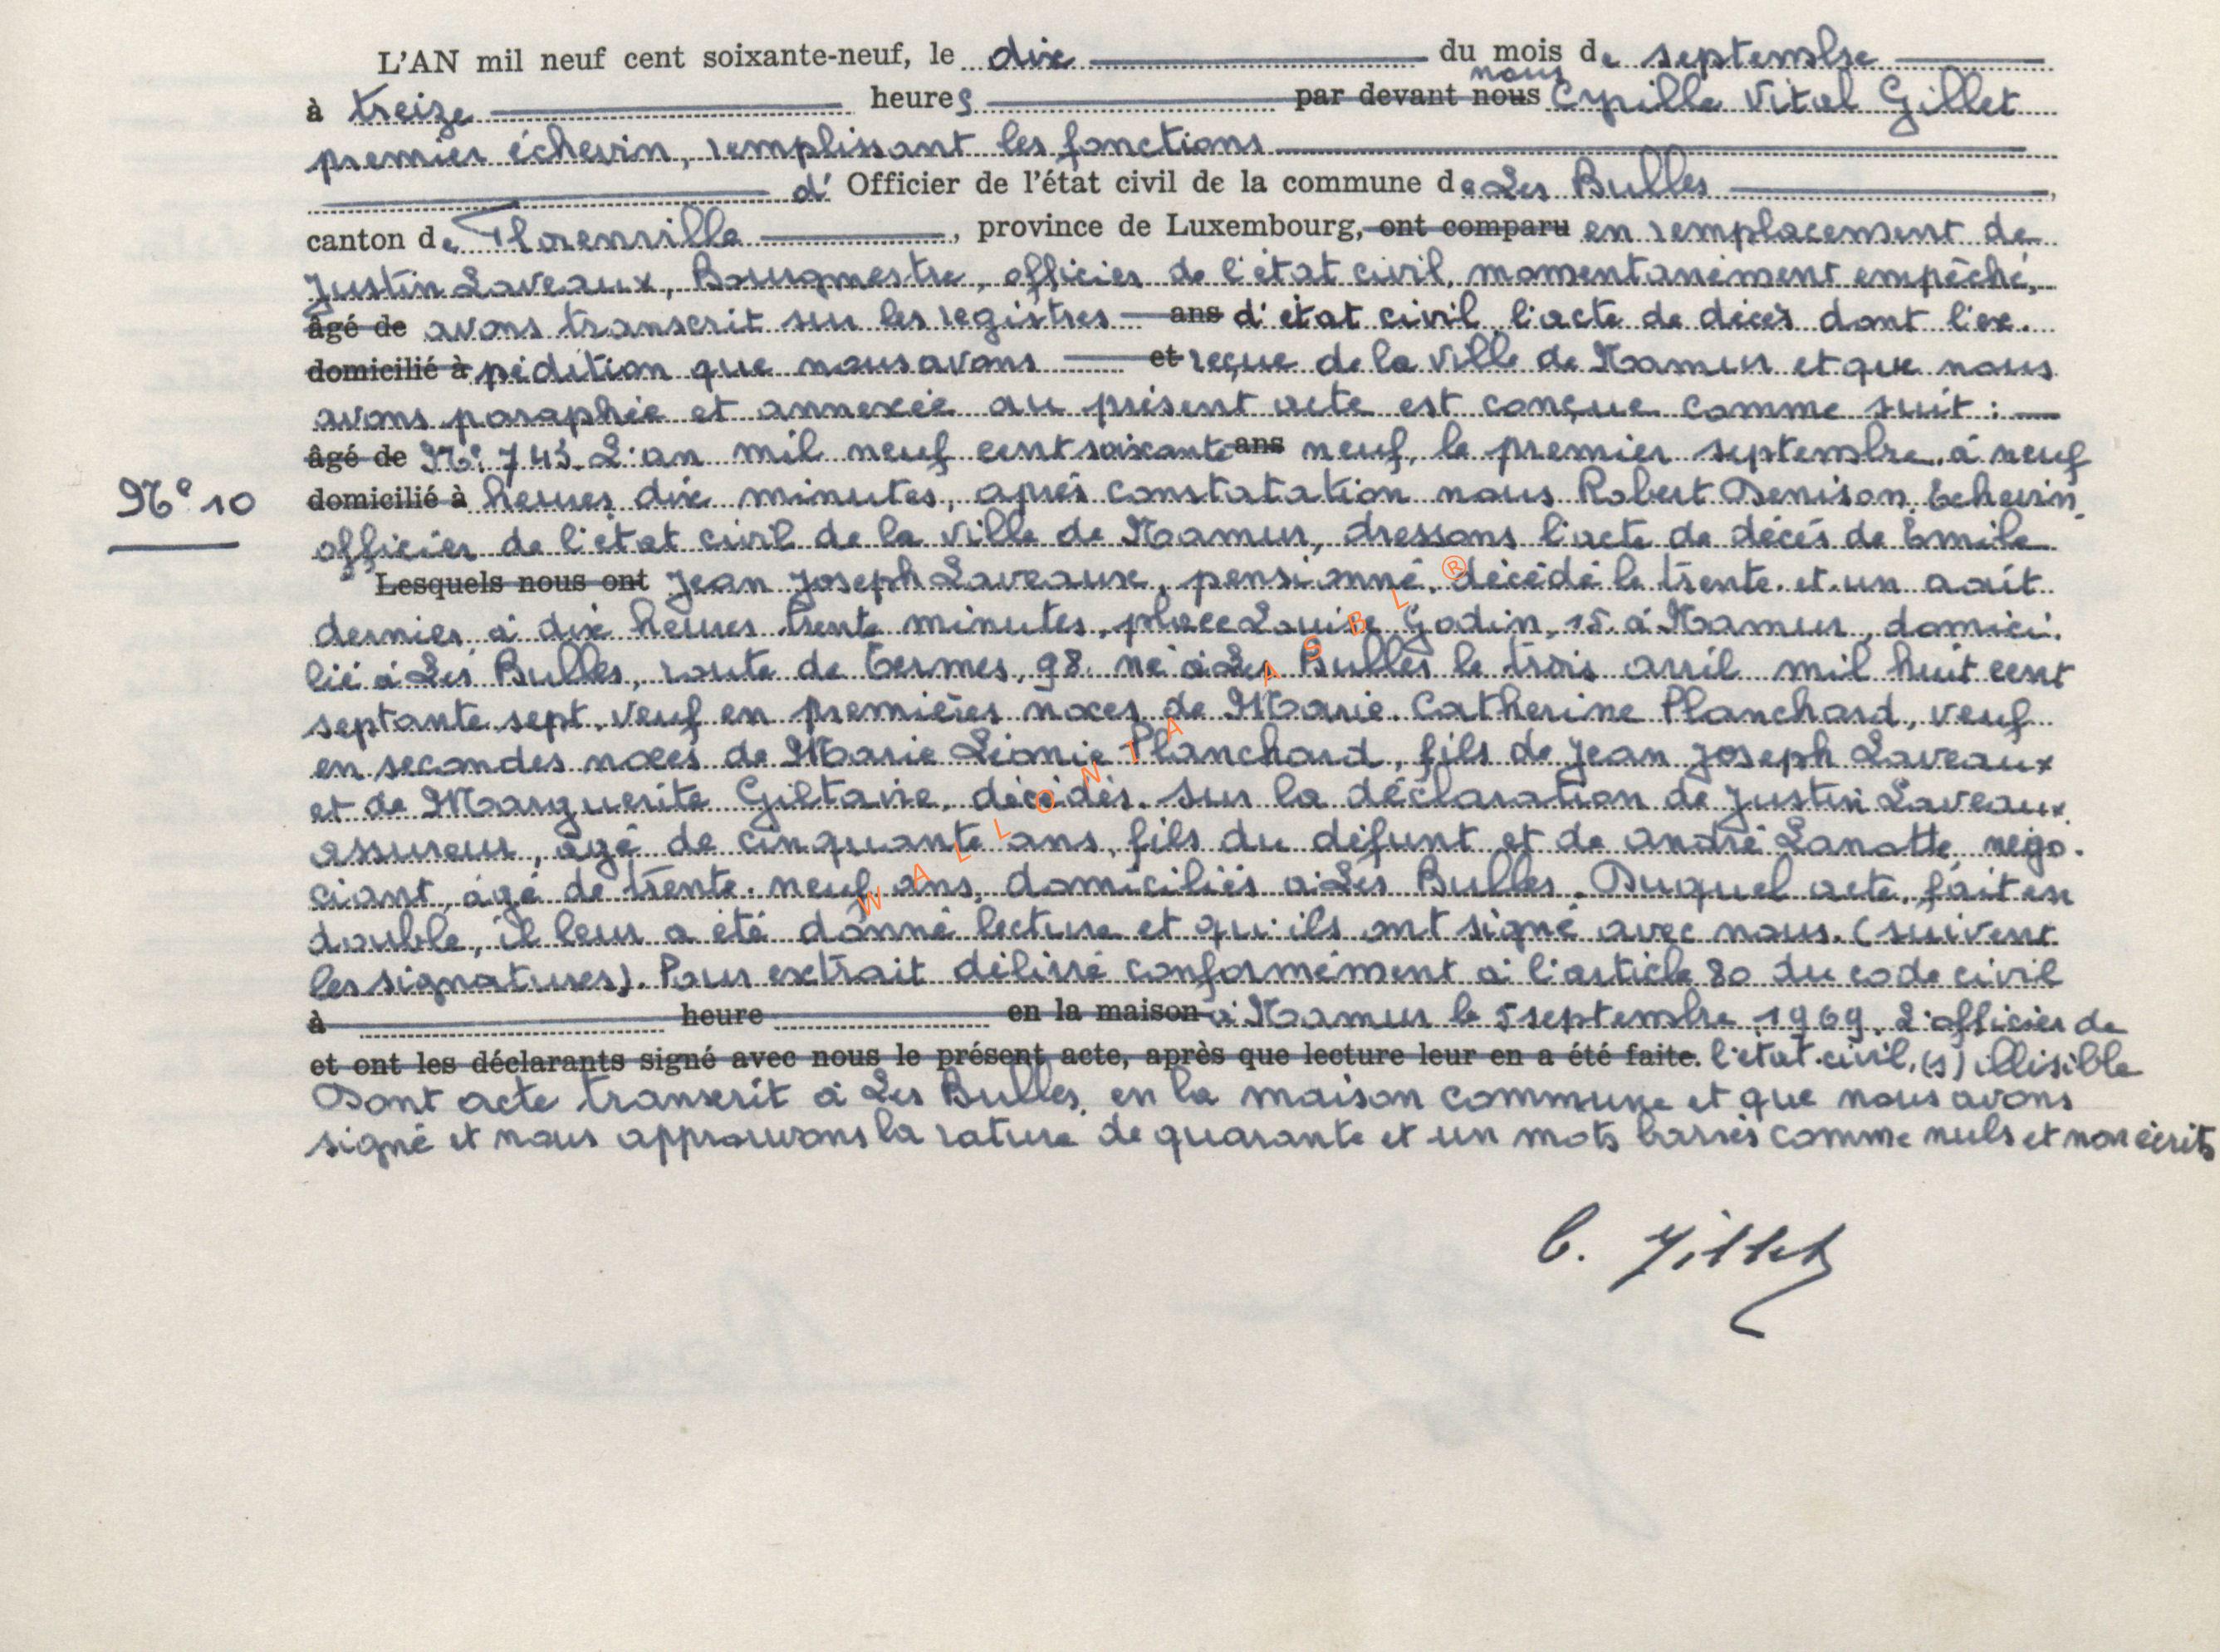 L'AN mil neuf cent soixante-neuf, le dix du mois de septembre
à treize heures par devant nous nous Cyrille Vital Gillet
premier échevin, remplissant les fonctions
d' Officier de l'état civil de la commune de Les Bulles,
canton de Florenville, province de Luxembourg, ont comparu en remplacement de
Justin Laveaux, Bourgmestre, officier de l'état civil, momentanément empêché,
âgé de avons transcrit sur les registres ans d'état civil l'acte de décès dont l'ex-
domicilié à pédition que nous avons et reçue de la ville de Namur et que nous
avons paraphée et annexée au présent acte est conçue comme suit :
âgé de N° 743. L'an mil neuf cent soixante ans neuf, le premier septembre à neuf
N° 10
domicilié à heures dix minutes, après constatation nous Robert Denison, Echevin,
officier de l'état civil de la ville de Namur, dressons l'acte de décès de Emile
Lesquels nous ont Jean Joseph Laveaux, pensionné, décédé le trente et un août
dernier à dix heures trente minutes, place Louise Godin, 15 à Namur, domici-
lié à Les Bulles, route de Termes, 98, né à Les Bulles le trois avril mil huit cent
septante sept, veuf en premières noces de Marie Catherine Planchard, veuf
en secondes noces de Marie Léonie Planchard, fils de Jean Joseph Laveaux
et de Marguerite Giltaire, décédés. Sur la déclaration de Justin Laveaux,
assureur, âgé de cinquante ans, fils du défunt et de andré Lanotte, négo-
ciant, âgé de trente-neuf ans, domiciliés à Les Bulles. Duquel acte, fait en
double, il leur a été donné lecture et qu'ils ont signé avec nous. (suivent
les signatures). Pour extrait délivré conformément à l'article 80 du code civil
à heure en la maison à Namur le 5 septembre 1969. L'officier de
et ont les déclarants signé avec nous le présent acte, après que lecture leur en a été faite. l'état civil, (s) illisible
Dont acte transcrit à Les Bulles, en la maison commune et que nous avons
signé et nous approuvons la rature de quarante et un mots barrés comme nuls et non écrits
C. Gillet
WALLONIA ASBL ®